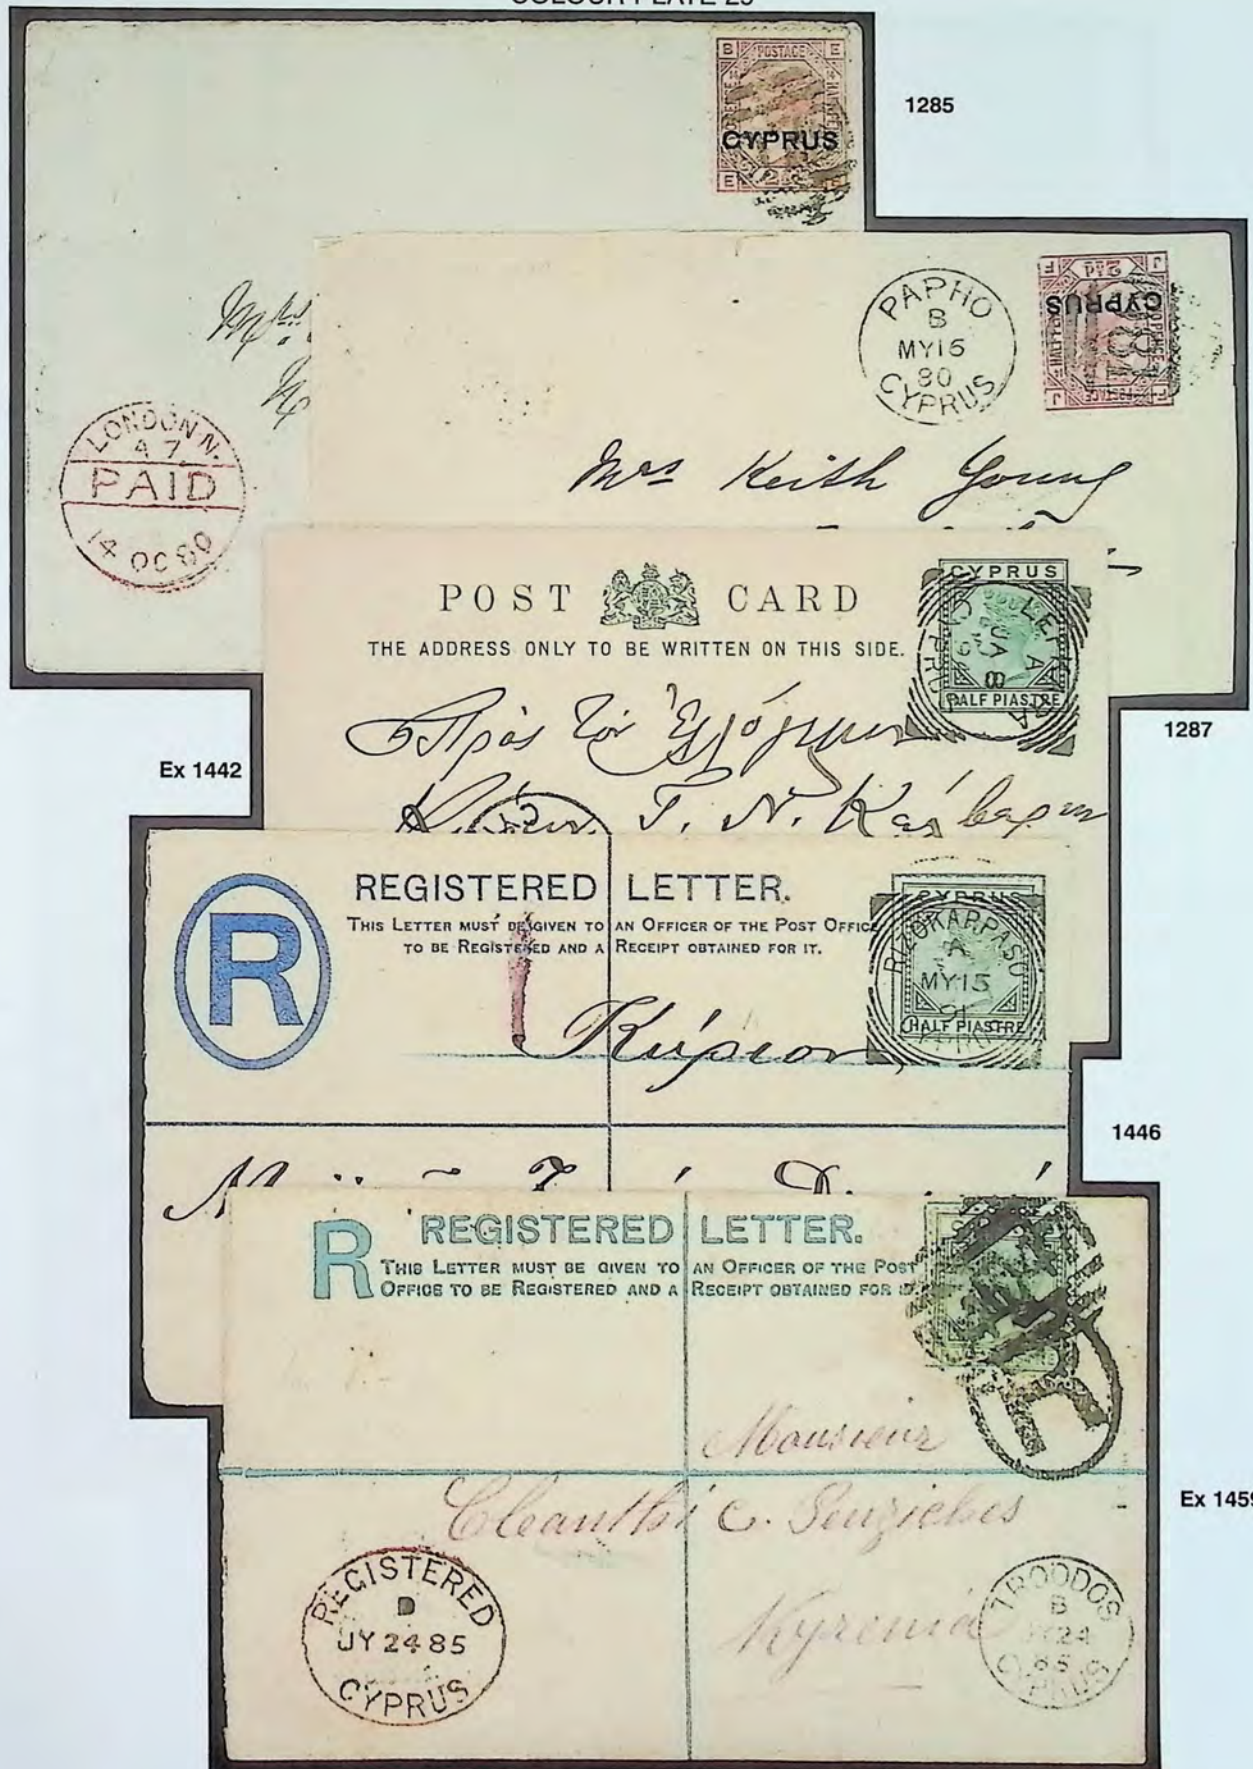 COLOUR PLATE
B POSTAGE E
CYPRUS
E
1285
PAPHO
B
MY15
80
CYPRUS
CYPRUS
LONDON.N.
4 7
PAID
14 OC 80
Mrs Keith Young
POST CARD
THE ADDRESS ONLY TO BE WRITTEN ON THIS SIDE.
CYPRUS
HALF PIASTRE
1287
Πρὸς τὸν
Γ. Ν.
Ex 1442
R
REGISTERED LETTER.
THIS LETTER MUST BE GIVEN TO AN OFFICER OF THE POST OFFICE
TO BE REGISTERED AND A RECEIPT OBTAINED FOR IT.
CYPRUS
RIZOKARPASO
A
MY15
HALF PIASTRE
Κύριον
1446
R
REGISTERED LETTER.
THIS LETTER MUST BE GIVEN TO AN OFFICER OF THE POST
OFFICE TO BE REGISTERED AND A RECEIPT OBTAINED FOR IT.
R
Monsieur
Cleanthi C.
Kyrenia
Ex 1459
REGISTERED
D
JY 24 85
CYPRUS
TROODOS
B
JY 24
85
CYPRUS